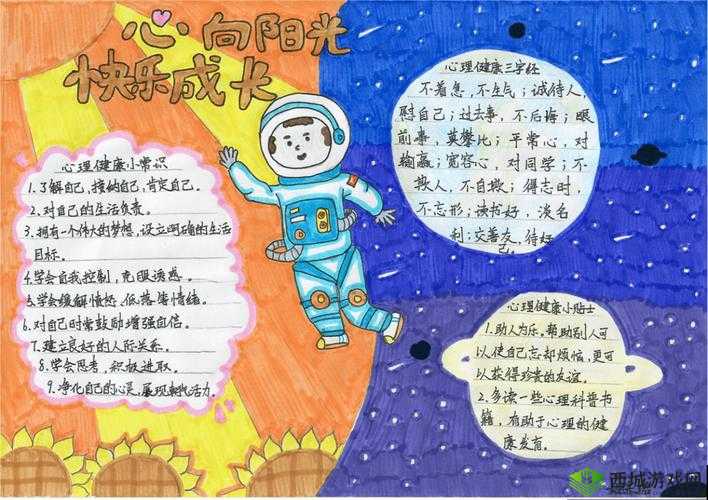 心向阳光
快乐成长
心理健康小常识
1.了解自己，接纳自己，肯定自己。
2.对自己的生活负责。
3.拥有一个伟大的梦想，设立明确的生活
目标。
4.学会自我控制，克服诱惑。
5.学会缓解愤怒、低落等情绪。
6.对自己时常鼓励增强自信。
7.建立良好的人际关系。
8.学会思考，积极进取。
9.净化自己的心灵，展现朝气活力。
心理健康三字经
不着急，不生气；诚待人，
慰自己；过去事，不后悔；眼
前事，莫攀比；平常心，对
输赢；宽容心，对同学；不
欺人，不自欺；得志时，
不忘形；读书好，淡名
利；交善友，待好
己。
心理健康小贴士
1.助人为乐。帮助别人可
以使自己忘却烦恼，更可
以获得珍贵的友谊。
2.多读一些心理科普书
籍，有助于心理的健
康发育。
西城游戏网